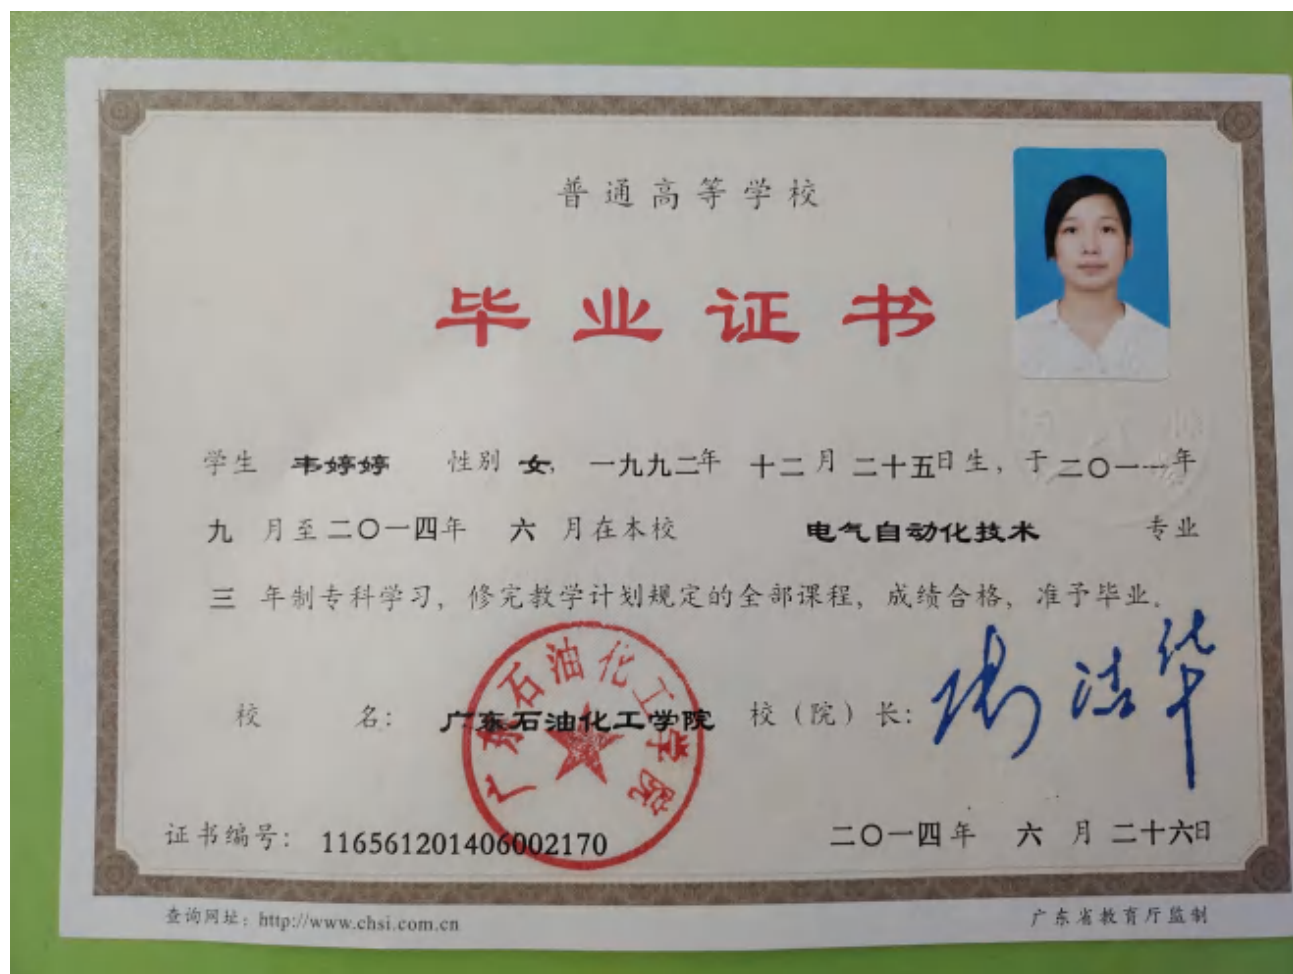 普通高等学校
毕业证书
学生 韦婷婷 性别 女, 一九九二年 十二月 二十五日生, 于二〇一一年
九 月至二〇一四年 六 月在本校 电气自动化技术 专业
三 年制专科学习, 修完教学计划规定的全部课程, 成绩合格, 准予毕业.
广东石油化工学院
校 名: 广东石油化工学院 校(院)长:
证书编号: 116561201406002170 二〇一四年 六 月 二十六日
查询网址: http://www.chsi.com.cn 广东省教育厅监制